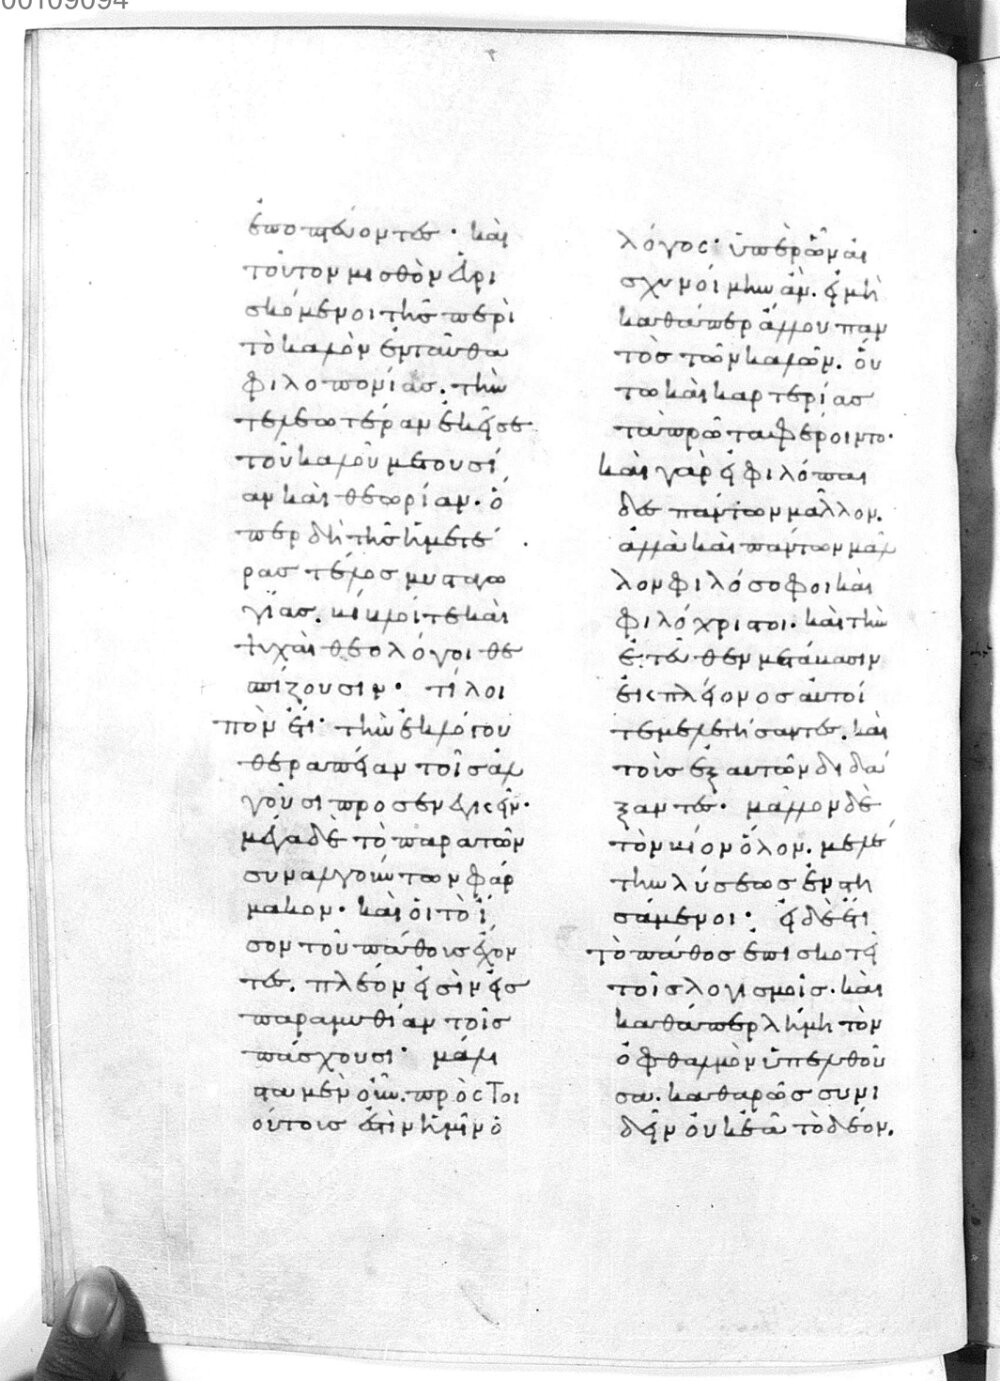 00109094
ἐποπτεύοντες· καὶ
τοῦτον μισθὸν εὑρι
σκόμενοι τῆς περὶ
τὸ καλὸν ἐνταῦθα
φιλοπονίας. τὴν
τελεωτέραν ἐκεῖσε
τοῦ καλοῦ μετουσί
αν καὶ θεωρίαν· ὅ
περ δὴ τῆς ἡμετέ
ρας τέλος μυσταγω
γίας. κἀκεῖνοί τε καὶ
ψυχαὶ θεολόγοι θε
σπίζουσιν· τί λοι
πὸν ἔτι· τὴν ἐκ λόγου
θεραπείαν τοῖς ἀλ
γοῦσι προσενεγκεῖν·
μέγα δὲ τὸ παρὰ τῶν
συναλγούντων φάρ
μακον· καὶ οἱ τὸ ἴ
σον τοῦ πάθους ἔχον
τες. πλέον εἰσὶν εἰς
παραμυθίαν τοῖς
πάσχουσι· μάλι
στα μὲν οὖν. πρὸς τοι
ούτοις ἐστὶν ἡμῖν ὁ
λόγος· ὑπὲρ ὧν αἰ
σχυνοίμην ἂν. εἰ μὴ
καθάπερ ἄλλου παν
τὸς τῶν καλῶν. οὕ
τω καὶ καρτερίας
τὰ πρῶτα φέροιντο·
καὶ γὰρ εἰ φιλόπαι
δες πάντων μᾶλλον.
ἀλλὰ καὶ πάντων μᾶλ
λον φιλόσοφοι καὶ
φιλόχριστοι· καὶ τὴν
ἐντεῦθεν μετάστασιν
ἐκ πλείονος αὐτοί
τε μελετήσαντες. καὶ
τοὺς ἐξ αὐτῶν διδά
ξαντες· μᾶλλον δὲ
τὸν βίον ὅλον. μελέ
την λύσεως ἐνστη
σάμενοι· εἰ δὲ ἔτι
τὸ πάθος ἐπισκοτεῖ
τοῖς λογισμοῖς· καὶ
καθάπερ λήμη τὸν
ὀφθαλμὸν ὑπελθοῦ
σα. καθαρῶς συνι
δεῖν οὐκ ἐᾷ τὸ δέον.